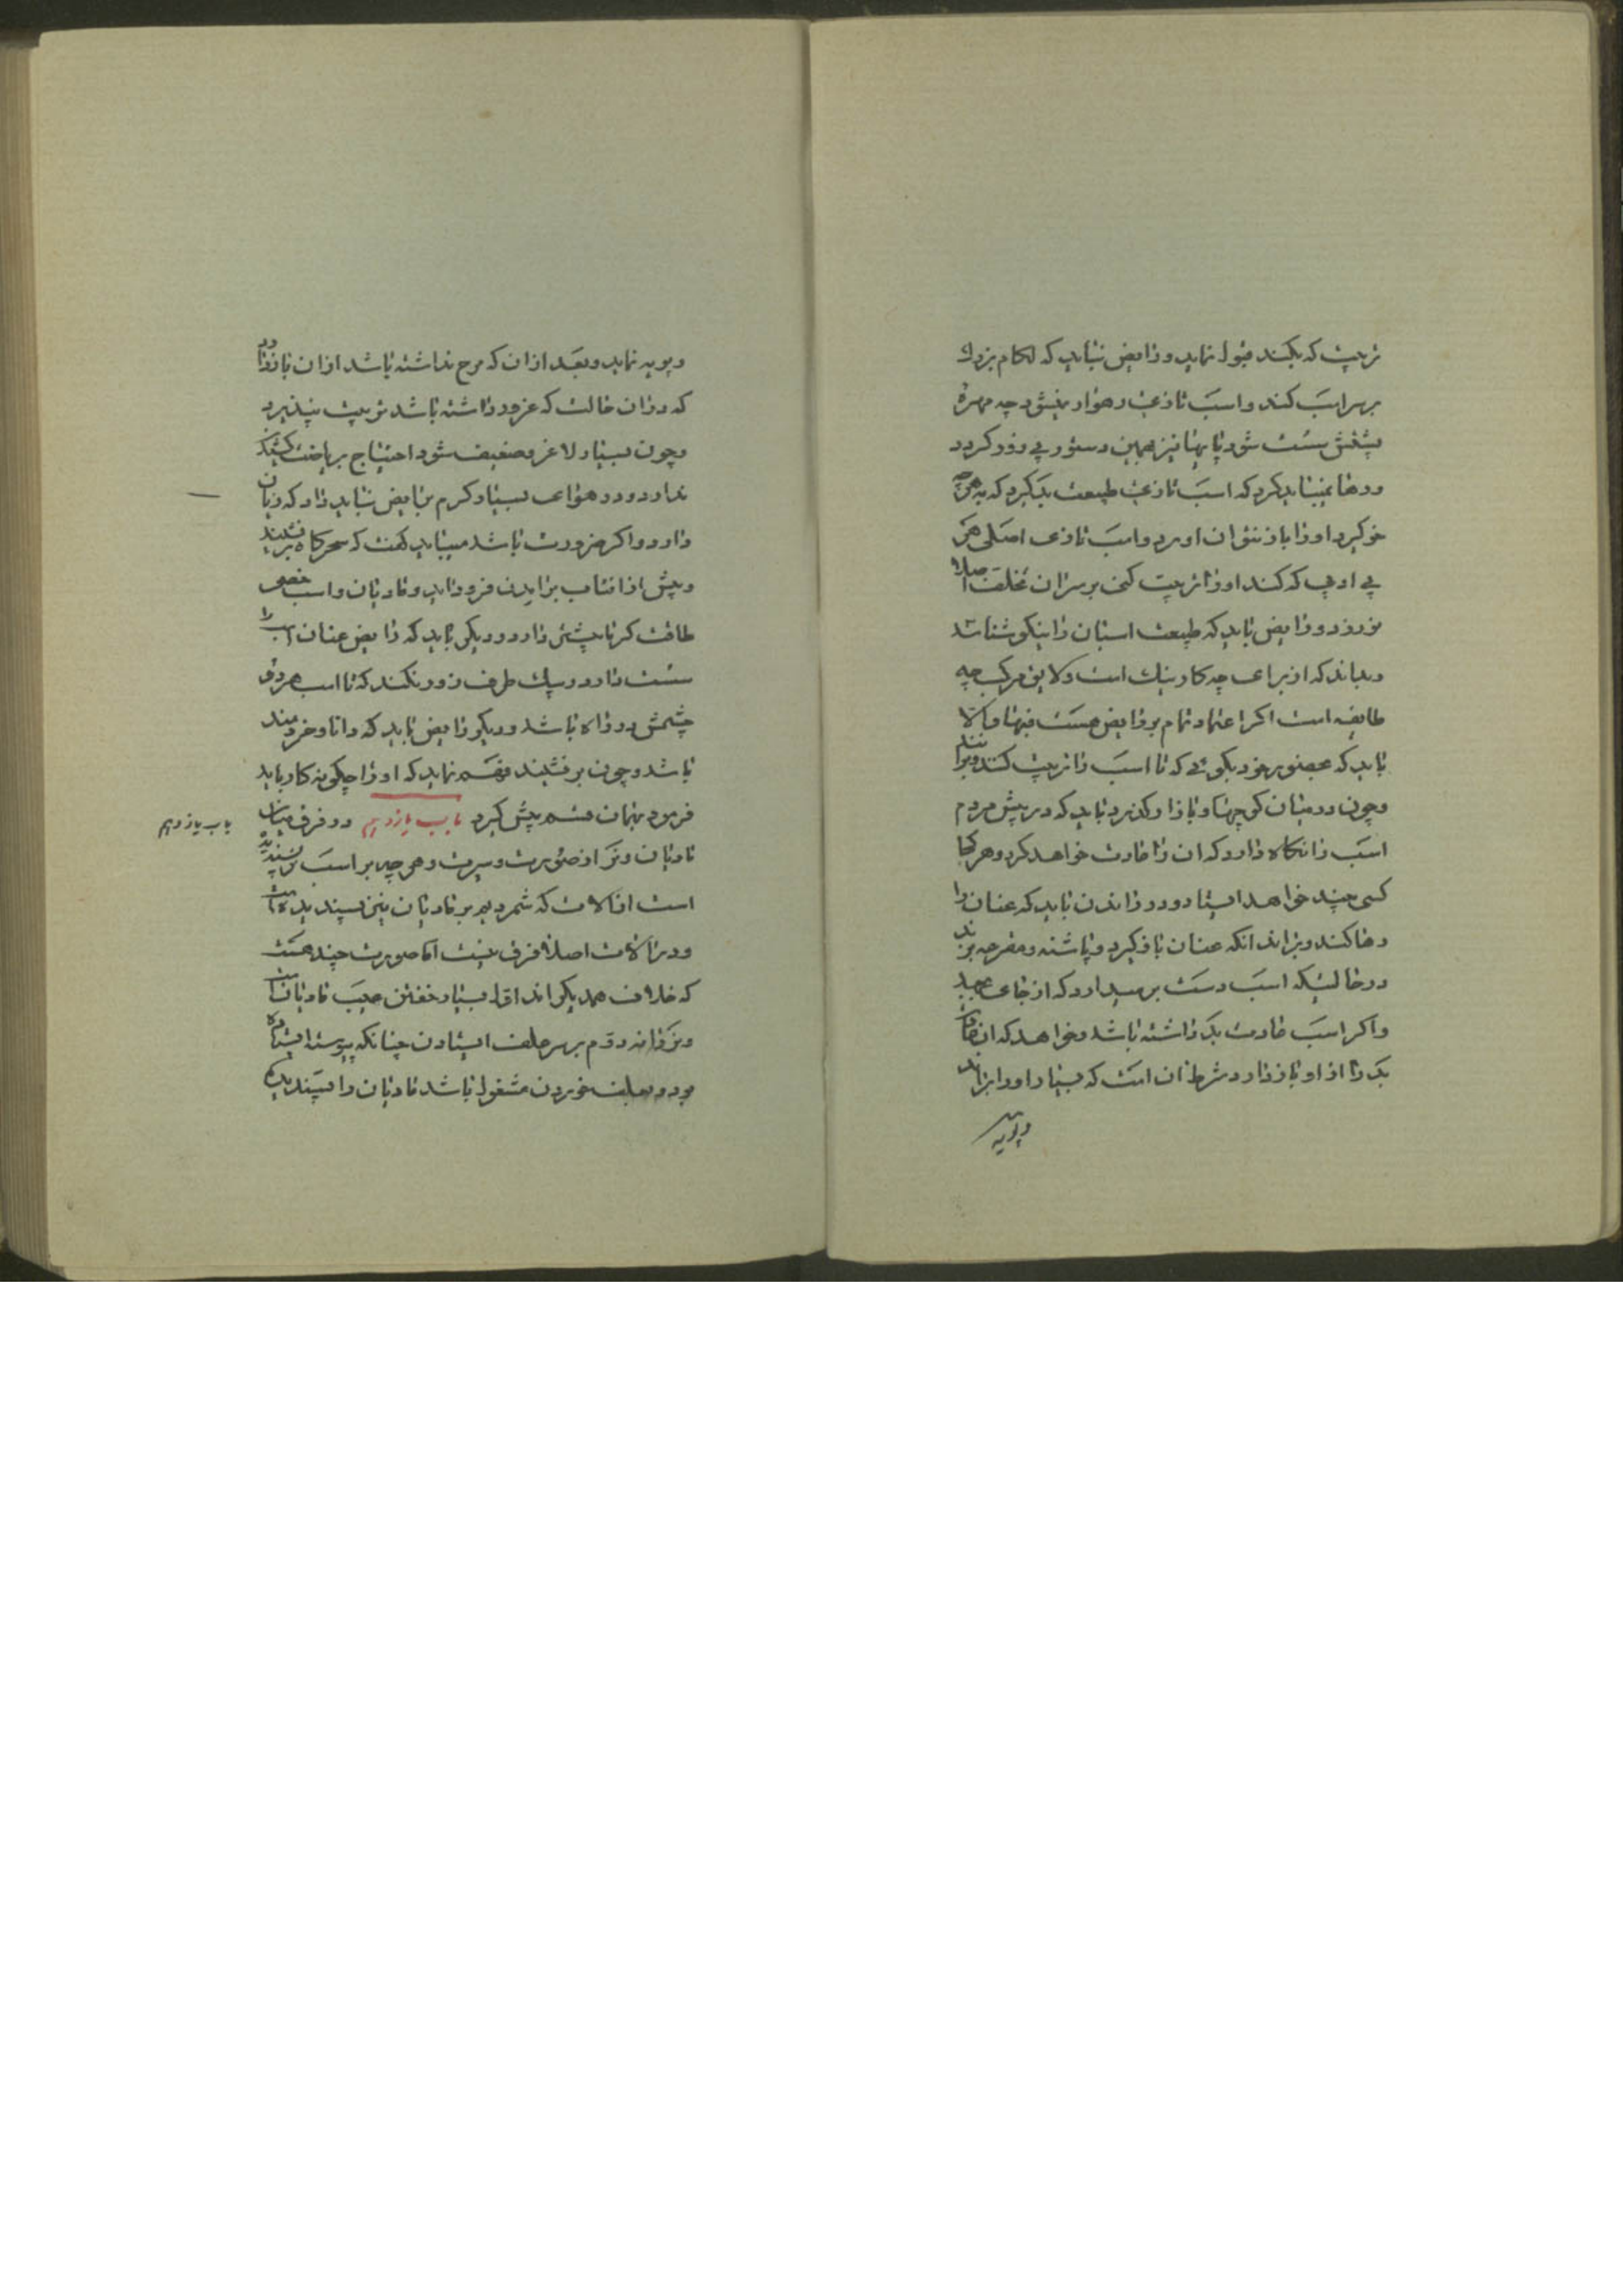 تربیت که بکند قبول نماید و رایض نباید که لکام بزرک
بر سر اسب کند و اسب تازی رهوار نمیشود چه مهرهٔ
پشتش سست شود پایها نیز بهمین دستور بی زور کردد
و رها نمیباید کرد که اسب تازی طبیعت بد کیرد که بهرچه
خو کیرد او را باز نتوان اورد و اسب تازی اصلی هر
بی ادبی که کند او را تربیت کنی بر سر ان تخلف اصلا
نورزد و رایض باید که طبیعت اسبان را نیکو شناسد
و بداند که از برای چه کار نیک است و لایق مرکب چه
طایفه است اکر اعتماد تمام بر رایض هست فبها و الا
باید که بحضور خود بکوی که تا اسب را تربیت کند و برنشیند
و چون در میان کوچها و بازار کذرد باید که در پیش مردم
اسب را نکاه دارد که ان را عادت خواهد کرد و هر کجا
کسی چند خواهد ایستاد و در راندن باید که عنان را
رها کند و براند انکه عنان باز کیرد و پاشنه و مقرعه بزند
در حالتیکه اسب دست بر میدارد که از جای بجهد
و اکر اسب عادت بد داشته باشد و خواهد که ان عادت
بد را از او باز دارد شرط ان است که بسیار او را براند
و پویه
و پویه نماید و بعد از ان که مرح نداشته باشد از ان باز دارد
که در ان حالت که غرور داشته باشد تربیت نپذیرد
و چون بسیار لاغر و ضعیف شود احتیاج بریاضت کشیدن
ندارد و در هوای بسیار کرم برایض نباید داد که زیان
دارد و اکر ضرورت باشد میباید کفت که سحرکاه برنشیند
و پیش از افتاب برامدن فرود اید و مادیان و اسب خصی
طاقت کرما بیشتر دارد و دیکر باید که رایض عنان اسب را
سست دارد و بیک طرف زور نکند که تا اسب هر دو
چشمش در راه باشد و دیکر رایض باید که دانا و خردمند
باشد و چون برنشیند فهم نماید که او را چکونه کار باید
فرمود بهمان قسم پیش کیرد باب یازدهم در فرق میان
مادیان و نر از صورت و سیرت و هر چه بر اسب نر پسندیده
است از الات که شمردیم بر مادیان نیز پسندیده است
و در الات اصلا فرق نیست اما صورت چند هست
که خلاف همدیکراند اول بسیار خفتن عیب مادیان است
و نر را نه دوم بر سر علف ایستادن چنانکه پیوسته ایستاده
بود و بعلف خوردن مشغول باشد مادیان را پسندیده
باب یازدهم